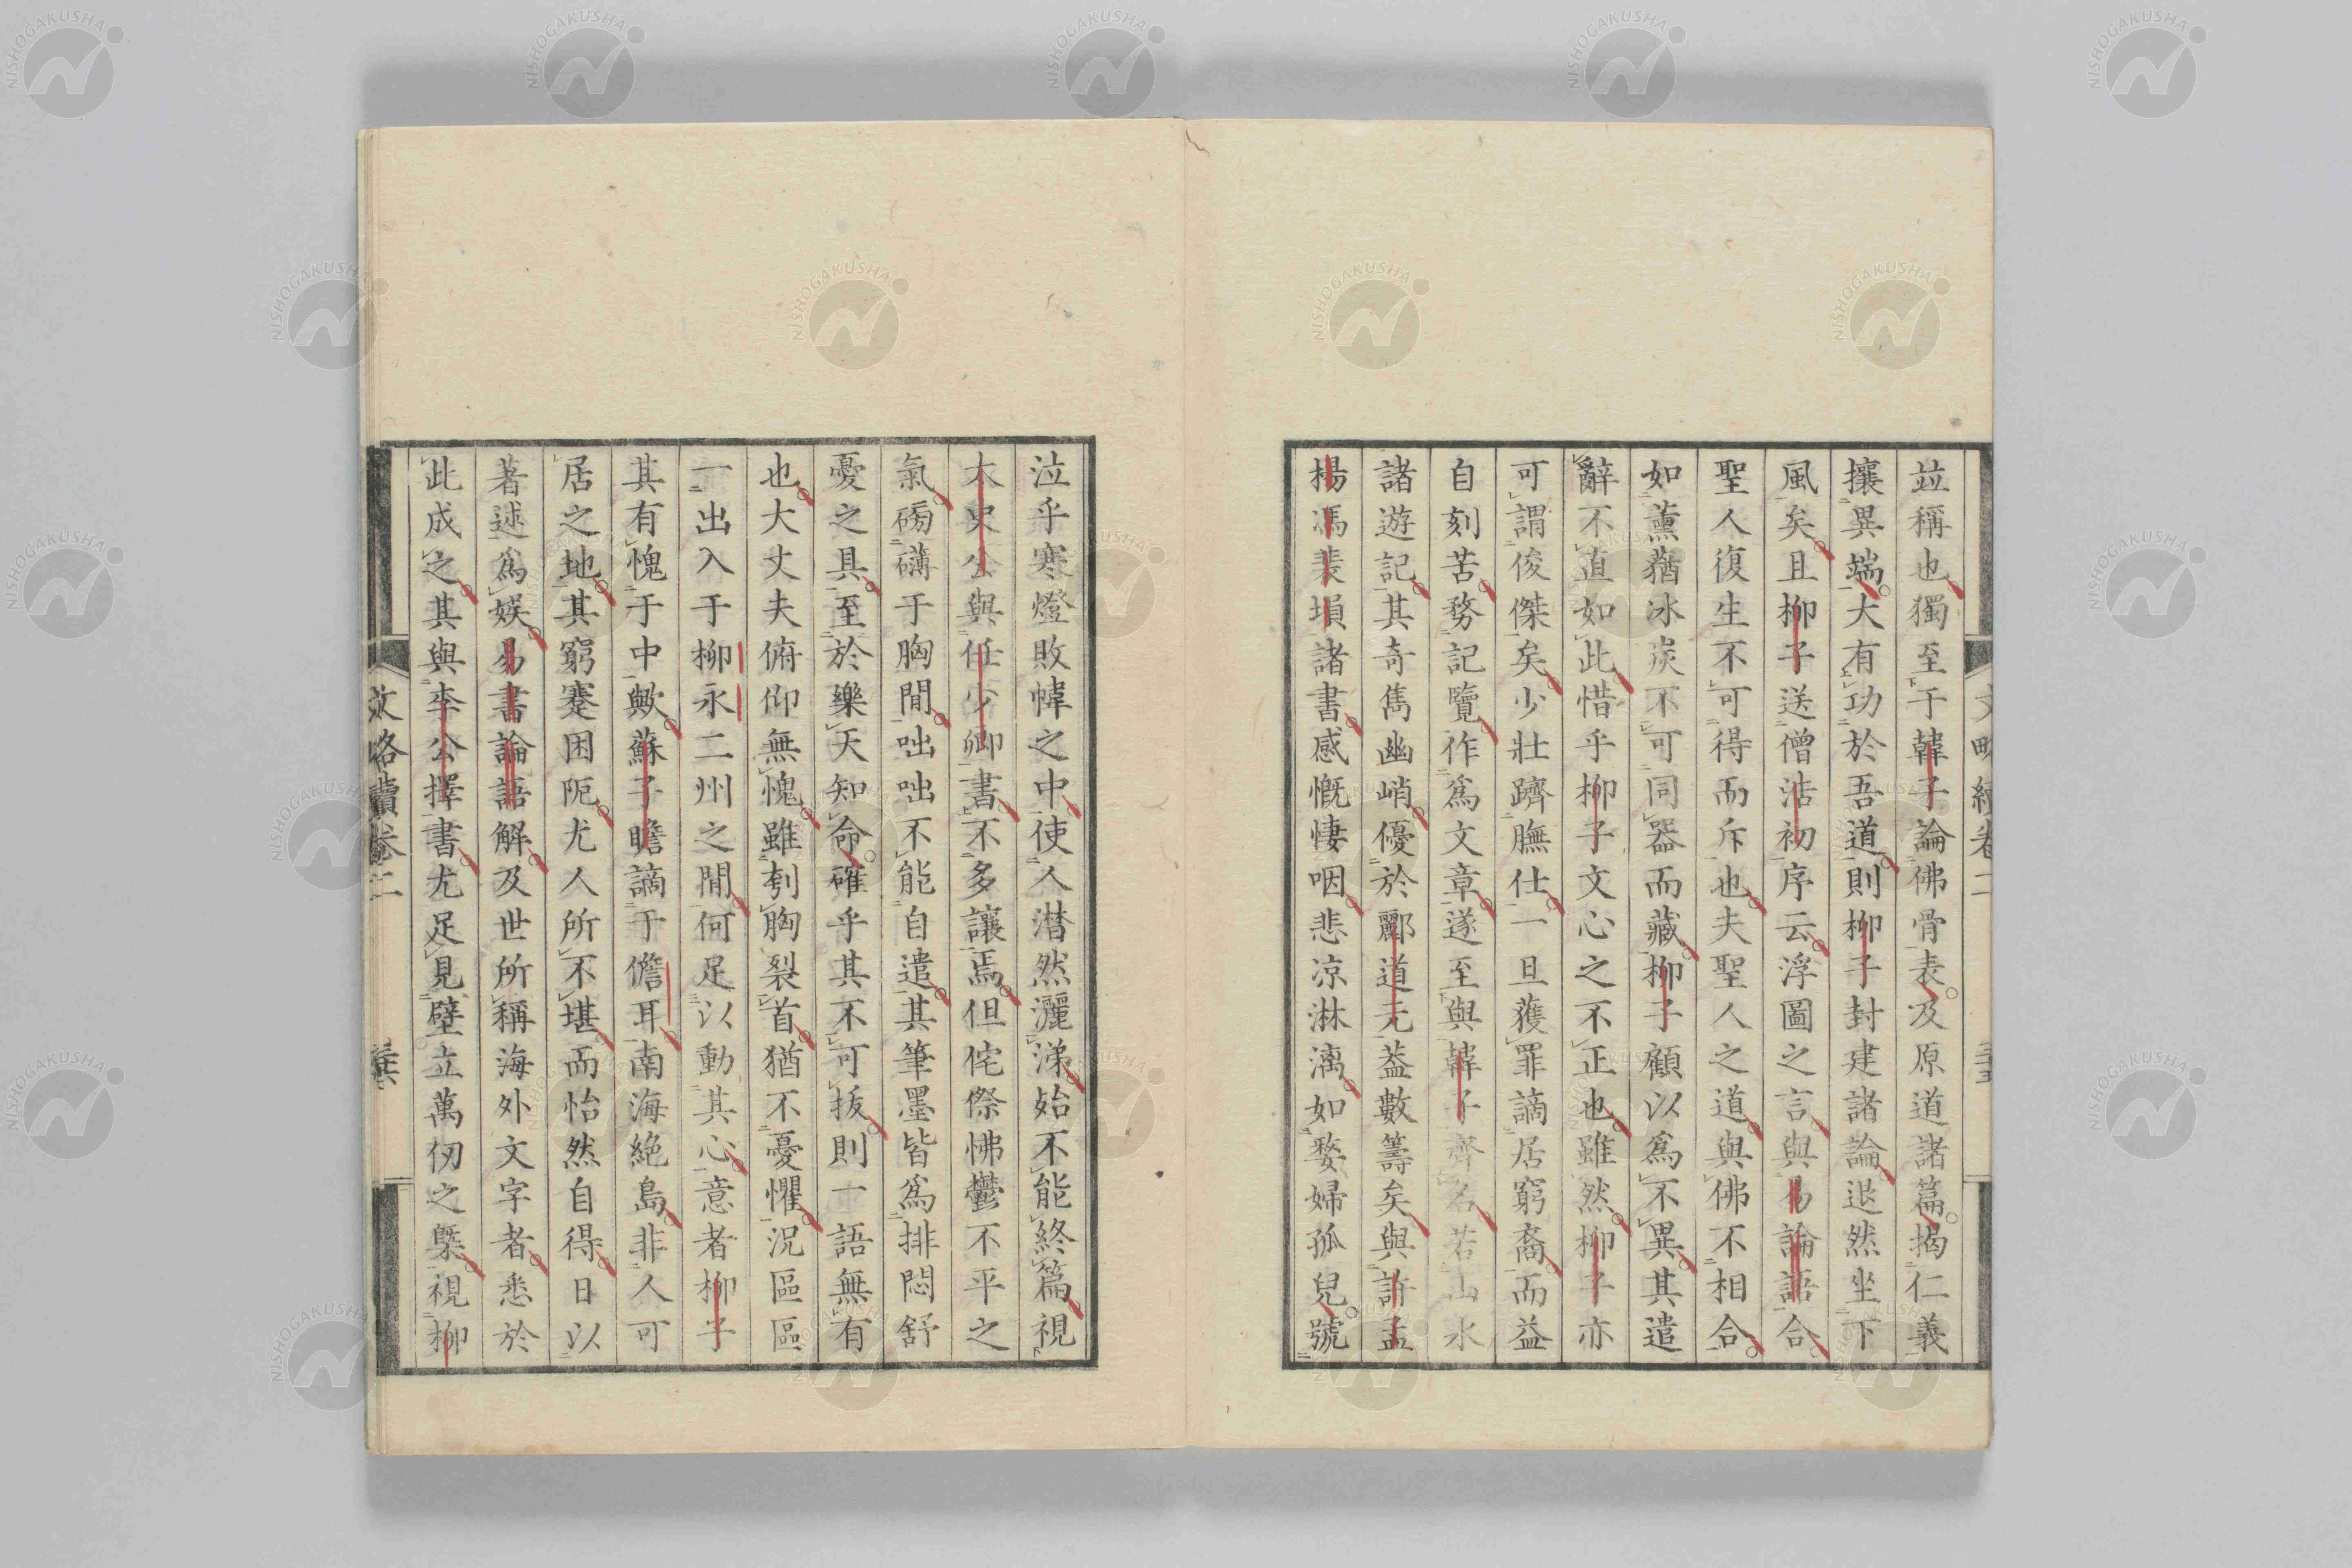 竝稱也獨至于韓子論佛骨表及原道諸篇揭仁義
攘異端大有功於吾道則柳子封建諸論退然坐下
風矣且柳子送僧浩初序云浮圖之言與易論語合
聖人復生不可得而斥也夫聖人之道與佛不相合
如薰蕕冰炭不可同器而藏柳子顧以爲不異其遣
辭不直如此惜乎柳子文心之不正也雖然柳子亦
可謂俊傑矣少壯躋膴仕一旦獲罪謫居窮裔而益
自刻苦務記覽作爲文章遂至與韓子齊名若山水
諸遊記其奇雋幽峭優於酈道元益數籌矣與許孟
楊馮裴塤諸書感慨悽咽悲凉淋漓如嫠婦孤兒號
文略續卷二
三十五
泣乎寒燈敗幃之中使人潜然灑涕始不能終篇視
太史公與任少卿書不多讓焉但侘傺怫鬱不平之
氣磅礴于胸間咄咄不能自遣其筆墨皆爲排悶舒
憂之具至於樂天知命確乎其不可拔則一語無有
也大丈夫俯仰無愧雖刳胸裂首猶不憂懼況區區
一出入于柳永二州之間何足以動其心意者柳子
其有愧于中歟蘇子瞻謫于儋耳南海絶島非人可
居之地其窮蹇困阨尤人所不堪而怡然自得日以
著述爲娯易書論語解及世所稱海外文字者悉於
此成之其與李公擇書尤足見壁立萬仞之槩視柳
文略續卷二
三十六
NISHOGAKUSHA